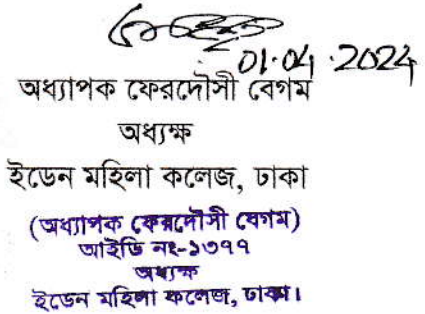 01.04.2024
অধ্যাপক ফেরদৌসী বেগম
অধ্যক্ষ
ইডেন মহিলা কলেজ, ঢাকা
(অধ্যাপক ফেরদৌসী বেগম)
আইডি নং-১৩৭৭
অধ্যক্ষ
ইডেন মহিলা কলেজ, ঢাকা।